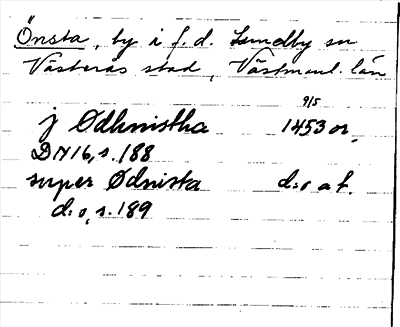 Önsta, by i f. d. Lundby sn
Västerås stad, Västmanl. län
9/5
j Ødhnistha 1453 or.
DN 16, s. 188
super Ødnista d:o af.
d:o, s. 189